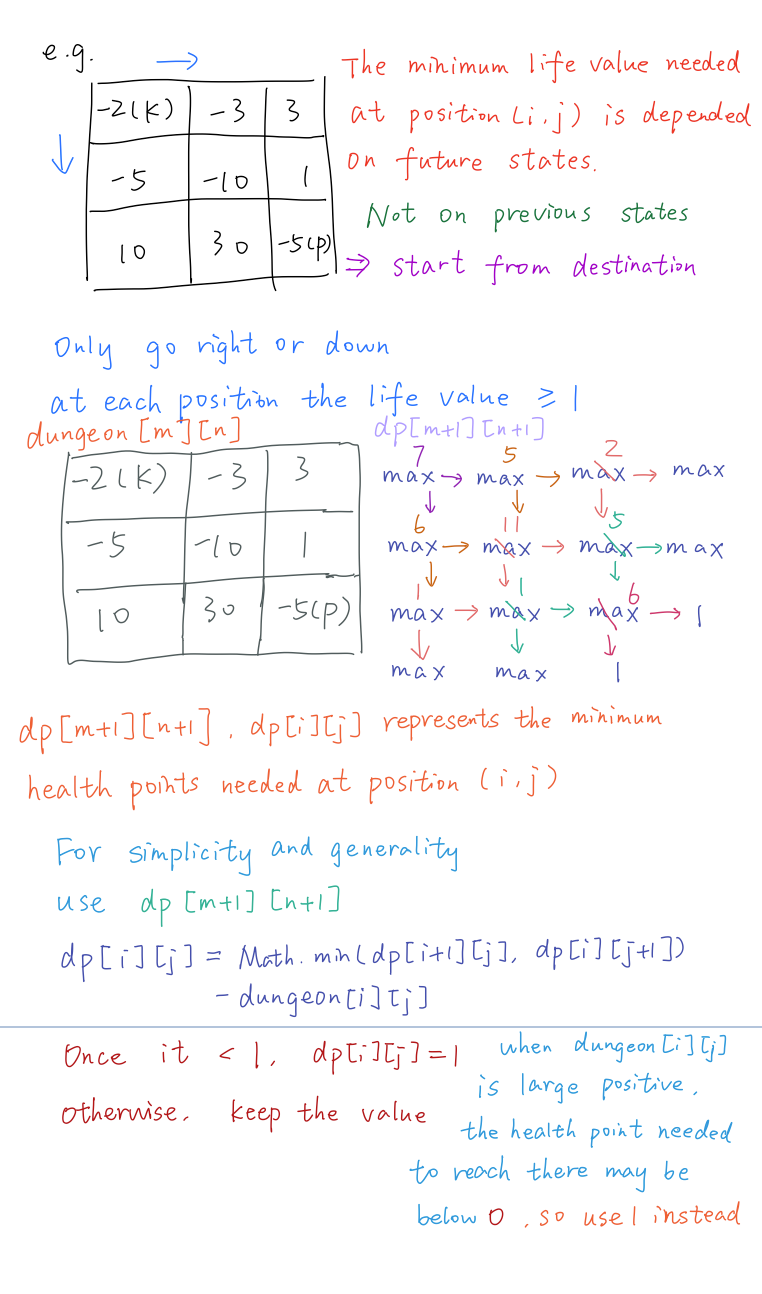 e.g. →
-2(K) -3 3
-5 -10 1
10 30 -5(P)
The minimum life value needed
at position (i,j) is depended
on future states.
Not on previous states
⇒ start from destination
Only go right or down
at each position the life value ≥ 1
dungeon[m][n]
-2(K) -3 3
-5 -10 1
10 30 -5(P)
dp[m+1][n+1]
7 5 2
max → max → max → max
6 11 5
max → max → max → max
1 1 6
max → max → max → 1
max max 1
dp[m+1][n+1], dp[i][j] represents the minimum
health points needed at position (i,j)
For simplicity and generality
use dp [m+1] [n+1]
dp[i][j] = Math.min(dp[i+1][j], dp[i][j+1])
- dungeon[i][j]
Once it < 1, dp[i][j]=1
otherwise, keep the value
when dungeon[i][j]
is large positive,
the health point needed
to reach there may be
below 0, so use 1 instead